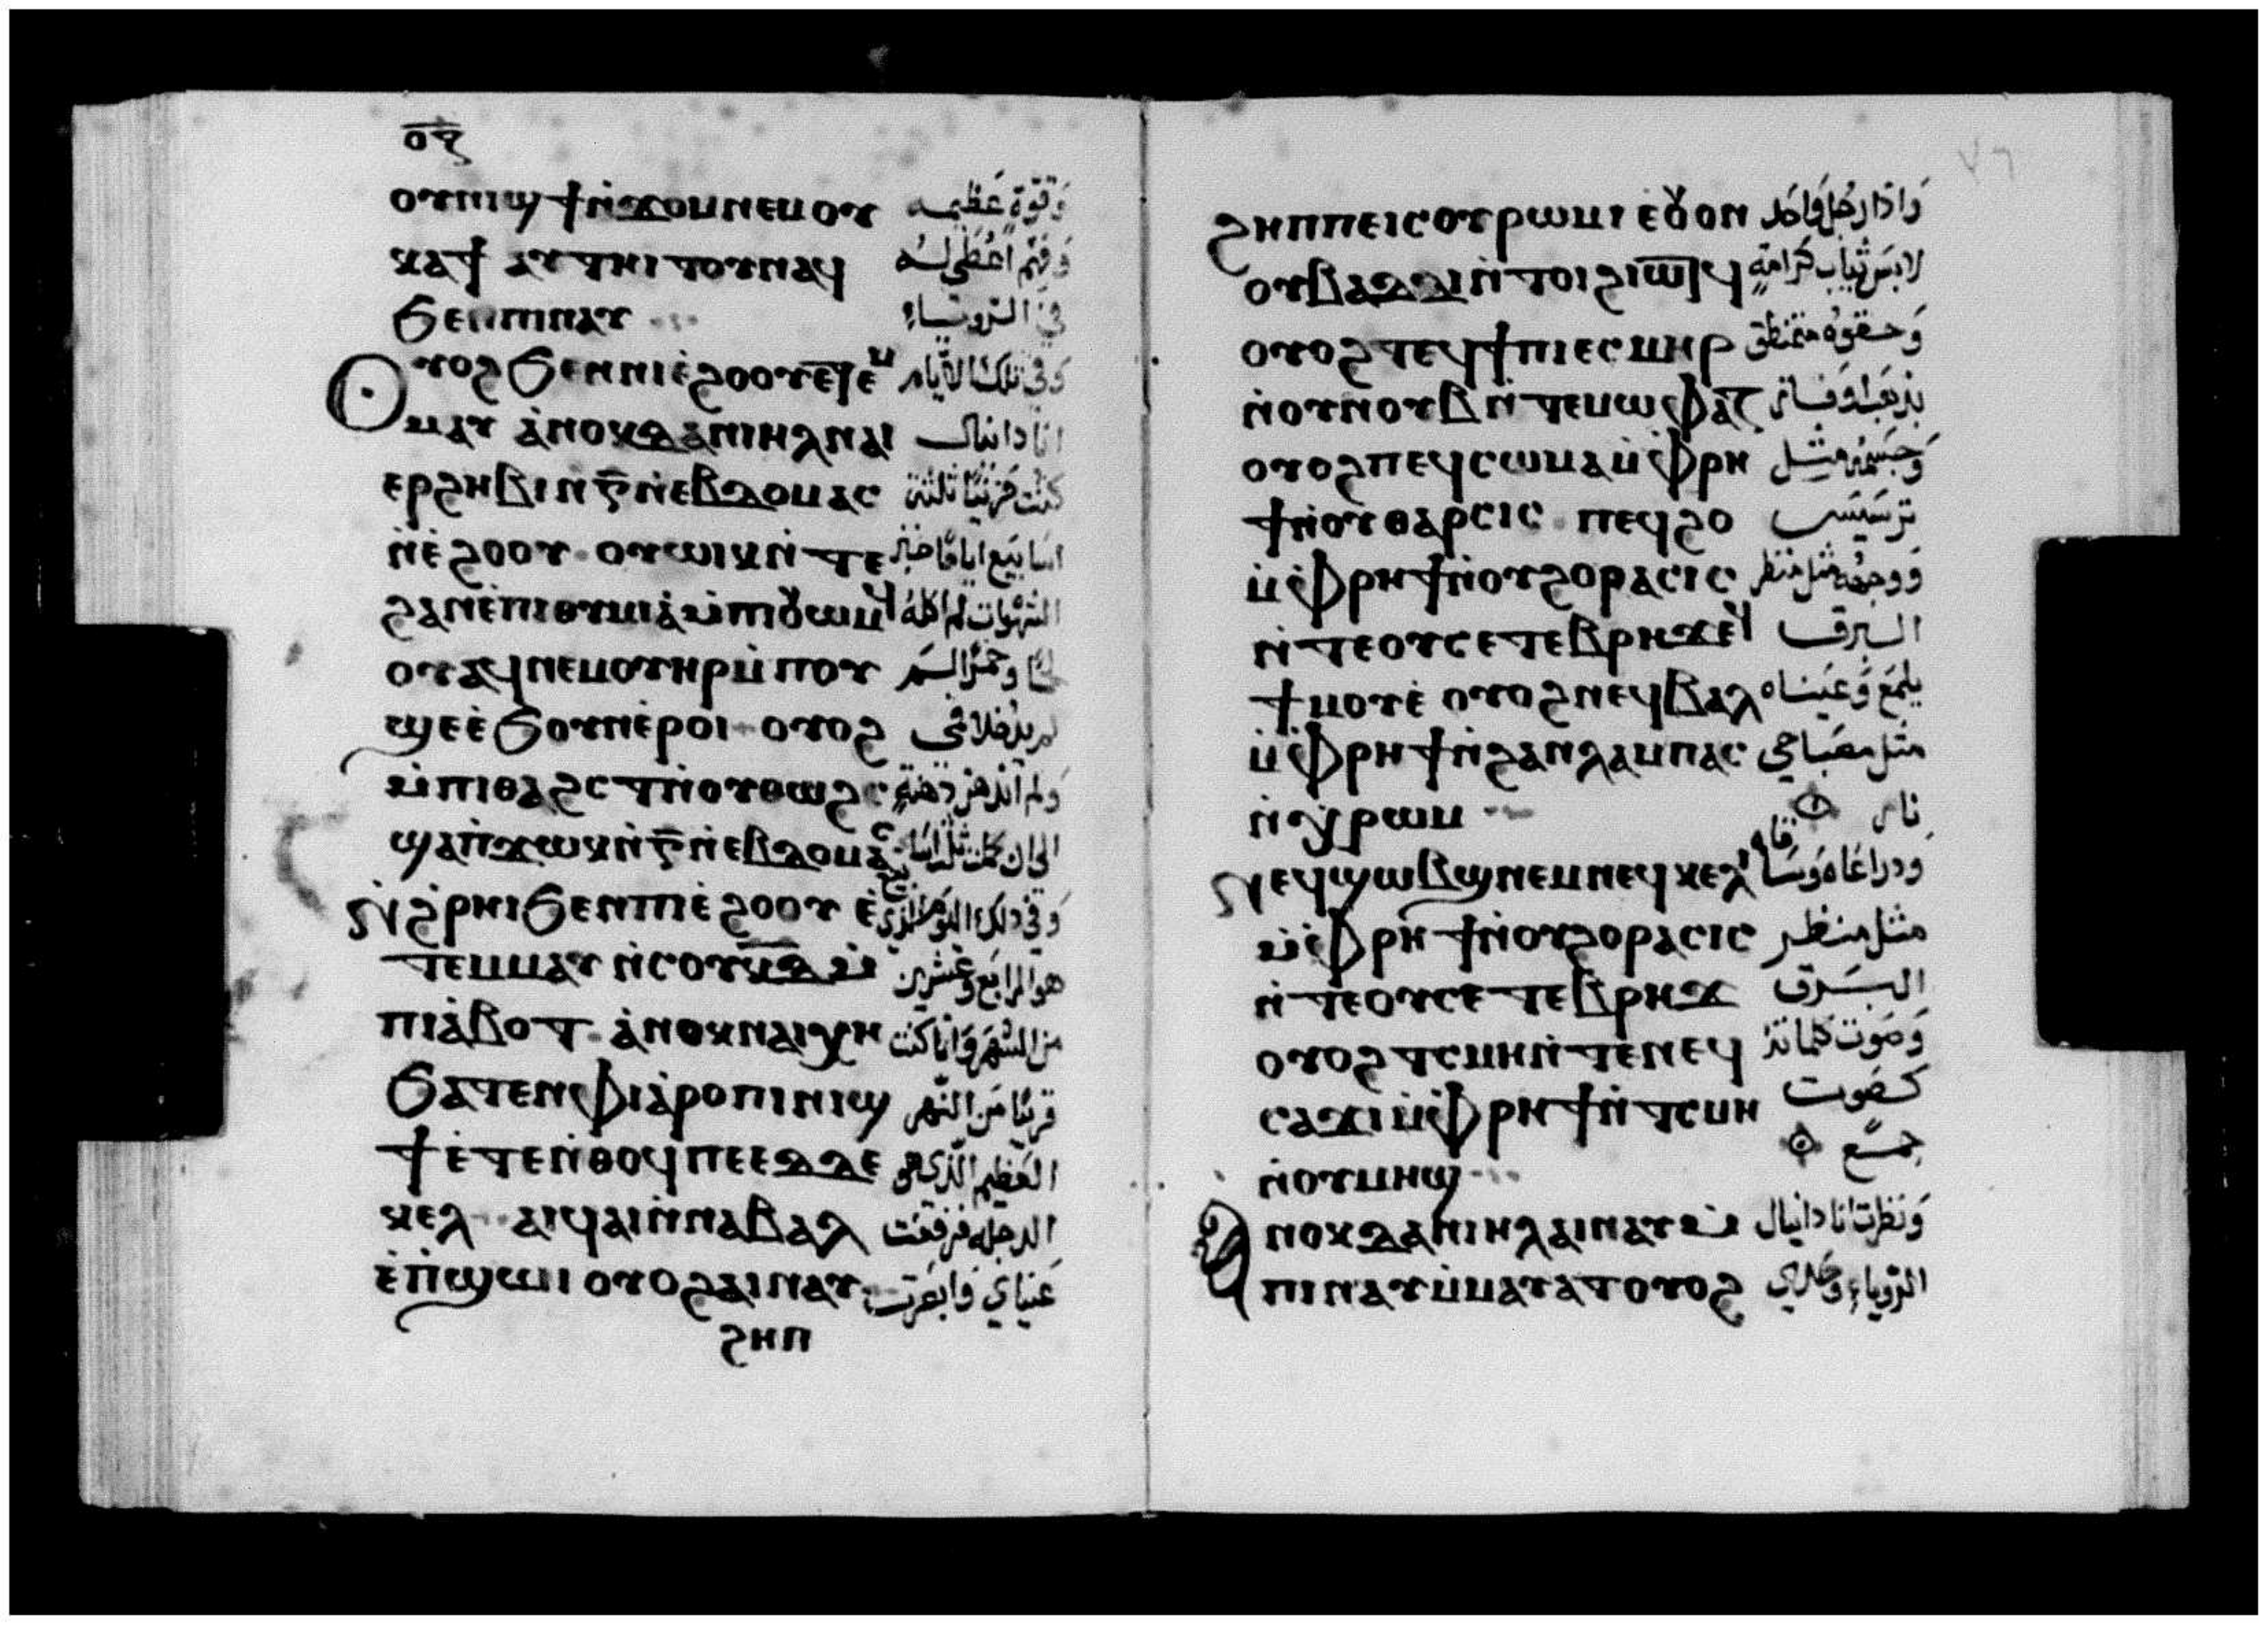 ⲟⲋ
ⲟⲩⲛⲓϣϯⲛ̀ϫⲟⲙⲛⲉⲙⲟⲩ وَقوّةٍ عَظيمه
ⲕⲁϯ ⲁⲩⲧⲏⲓⲧⲟⲩⲛⲁϥ وَفهَم اعُطي لهُ
ϧⲉⲛⲡⲓⲛⲁⲩ في الرُوياءِ
Ⲟⲩⲟϩϧⲉⲛⲛⲓⲉ̀ϩⲟⲟⲩⲉⲧⲉⲙ وَفي تلكَ الاَيام
ⲙⲁⲩ ⲁ̀ⲛⲟⲕⲇⲁⲛⲓⲏⲗⲛⲁⲓ انا دانيال
ⲉⲣϩⲏⲃⲓⲛ̀ⲅ̅ⲛ̀ⲉⲃⲇⲟⲙⲁⲥ كنُت حَزينًا ثلثة
ⲛ̀ⲉ̀ϩⲟⲟⲩ ⲟⲩⲱⲓⲕⲛ̀ⲧⲉ اسَابيَع ايامًا خبز
ϩⲁⲛⲉ̀ⲡⲓⲑⲩⲙⲓⲁ̀ⲙ̀ⲡⲓⲟⲩⲱⲙϥ الشهْوات لم اكلهُ
ⲟⲩⲁϥⲛⲉⲙⲟⲩⲏⲣⲡ̀ⲙ̀ⲡⲟⲩ
ϣⲉⲉ̀ϧⲟⲩⲛⲉ̀ⲣⲟⲓ ⲟⲩⲟϩ لم يدُخلا في
ⲙ̀ⲡⲓⲑⲁϩⲥⲧⲛ̀ⲟⲩⲑⲱϩⲥ وَلم اندهن دهنةٍ
ϣⲁⲡ̀ϫⲱⲕⲛ̀ⲅ̅ⲛ̀ⲉⲃⲇⲟⲙⲁⲥ
Ⲛ̀ϩ̀ⲣⲏⲓϧⲉⲛⲡⲓⲉ̀ϩⲟⲟⲩ ⲉ̀ وَفي ذلكَ اليَوم الذي
ⲧⲉⲙⲙⲁⲩ ⲛ̀ⲥⲟⲩⲕ̅ⲇ̅ⲙ̀ هو الرابَع وَعشرين
ⲡⲓⲁ̀ⲃⲟⲧ ⲁ̀ⲛⲟⲕⲛⲁⲓⲭⲏ من الشهَر وَانا كنت
ϧⲁⲧⲉⲛⲫⲓⲁ̀ⲣⲟⲡⲓⲛⲓϣ قريبًا مَن النّهر
ϯⲉ̀ⲧⲉⲛ̀ⲑⲟϥⲡⲉⲉⲇⲇⲉ العَظيم الّذي هو
ⲕⲉⲗ ⲁⲓϥⲁⲓⲛ̀ⲛⲁⲃⲁⲗ الدجله فرَفعَت
ⲉ̀ⲡ̀ϣⲱⲓⲟⲩⲟϩⲁⲓⲛⲁⲩ عَينَاي فابصَرت
ϩⲏⲡ
٧٦
ϩⲏⲡⲡⲉⲓⲥⲟⲩⲣⲱⲙⲓⲉⲟⲩⲟⲛ وَاذا رَجُل وَاحَد
ⲟⲩⲃⲁⲇⲇⲓⲛ̀ⲧⲟⲓϩⲓⲱⲧϥ لابسَ ثيَاب كرامةٍ
ⲟⲩⲟϩⲧⲉϥϯⲡⲓⲉⲥⲙⲏⲣ وَحقوهُ متمَنطق
ⲛ̀ⲟⲩⲛⲟⲩⲃⲛ̀ⲧⲉⲙⲱⲫⲁⲍ بذهَب اوفاز
ⲟⲩⲟϩⲡⲉϥⲥⲱⲙⲁⲙ̀ⲫⲣⲏ وَجسَمهُ مثِل
ϯⲛ̀ⲟⲩⲑⲁⲣⲥⲓⲥ ⲡⲉϥϩⲟ ترسَيسَ
ⲙ̀ⲫⲣⲏϯⲛ̀ⲟⲩϩⲟⲣⲁⲥⲓⲥ وَوجهُه مثل منظر
ⲛ̀ⲧⲉⲟⲩⲥⲉⲧⲉⲃⲣⲏϫⲉϥ البرق
ϯⲙⲟⲩⲉ̀ ⲟⲩⲟϩⲛⲉϥⲃⲁⲗ يلمَع وَعَينَاه
ⲙ̀ⲫⲣⲏϯⲛ̀ϩⲁⲛⲗⲁⲙⲡⲁⲥ مثل مصَباحي
ⲛ̀ⲭⲣⲱⲙ نار
Ⲛⲉϥϣⲱⲃϣⲛⲉⲙⲛⲉϥⲕⲉⲗ ودراعَاه وَسَاقاه
ⲙ̀ⲫⲣⲏϯⲛ̀ⲟⲩϩⲟⲣⲁⲥⲓⲥ مثل منظر
ⲛ̀ⲧⲉⲟⲩⲥⲉⲧⲉⲃⲣⲏϫ البَرق
ⲟⲩⲟϩⲧⲥⲙⲏⲛ̀ⲧⲉⲛⲉϥ وَصَوت كلماته
ⲥⲁϫⲓⲙ̀ⲫⲣⲏϯⲛ̀ⲧⲥⲙⲏ كصَوت
ⲛ̀ⲟⲩⲙⲏϣ جمَع
Ⲁⲛⲟⲕⲇⲁⲛⲓⲏⲗⲁⲓⲛⲁⲩⲉ̀ وَنظرت انا دانيال
ⲡⲓⲛⲁⲩⲙ̀ⲙⲁⲩⲁⲧⲟⲩⲟϩ الروياءِ وَحَدي